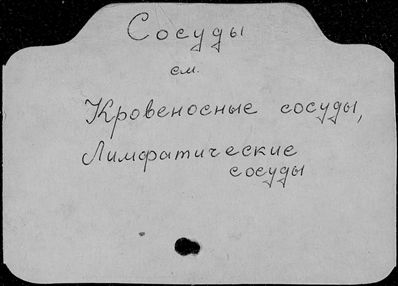 Сосуды
см.
Кровеносные сосуды,
Лимфатические
сосуды